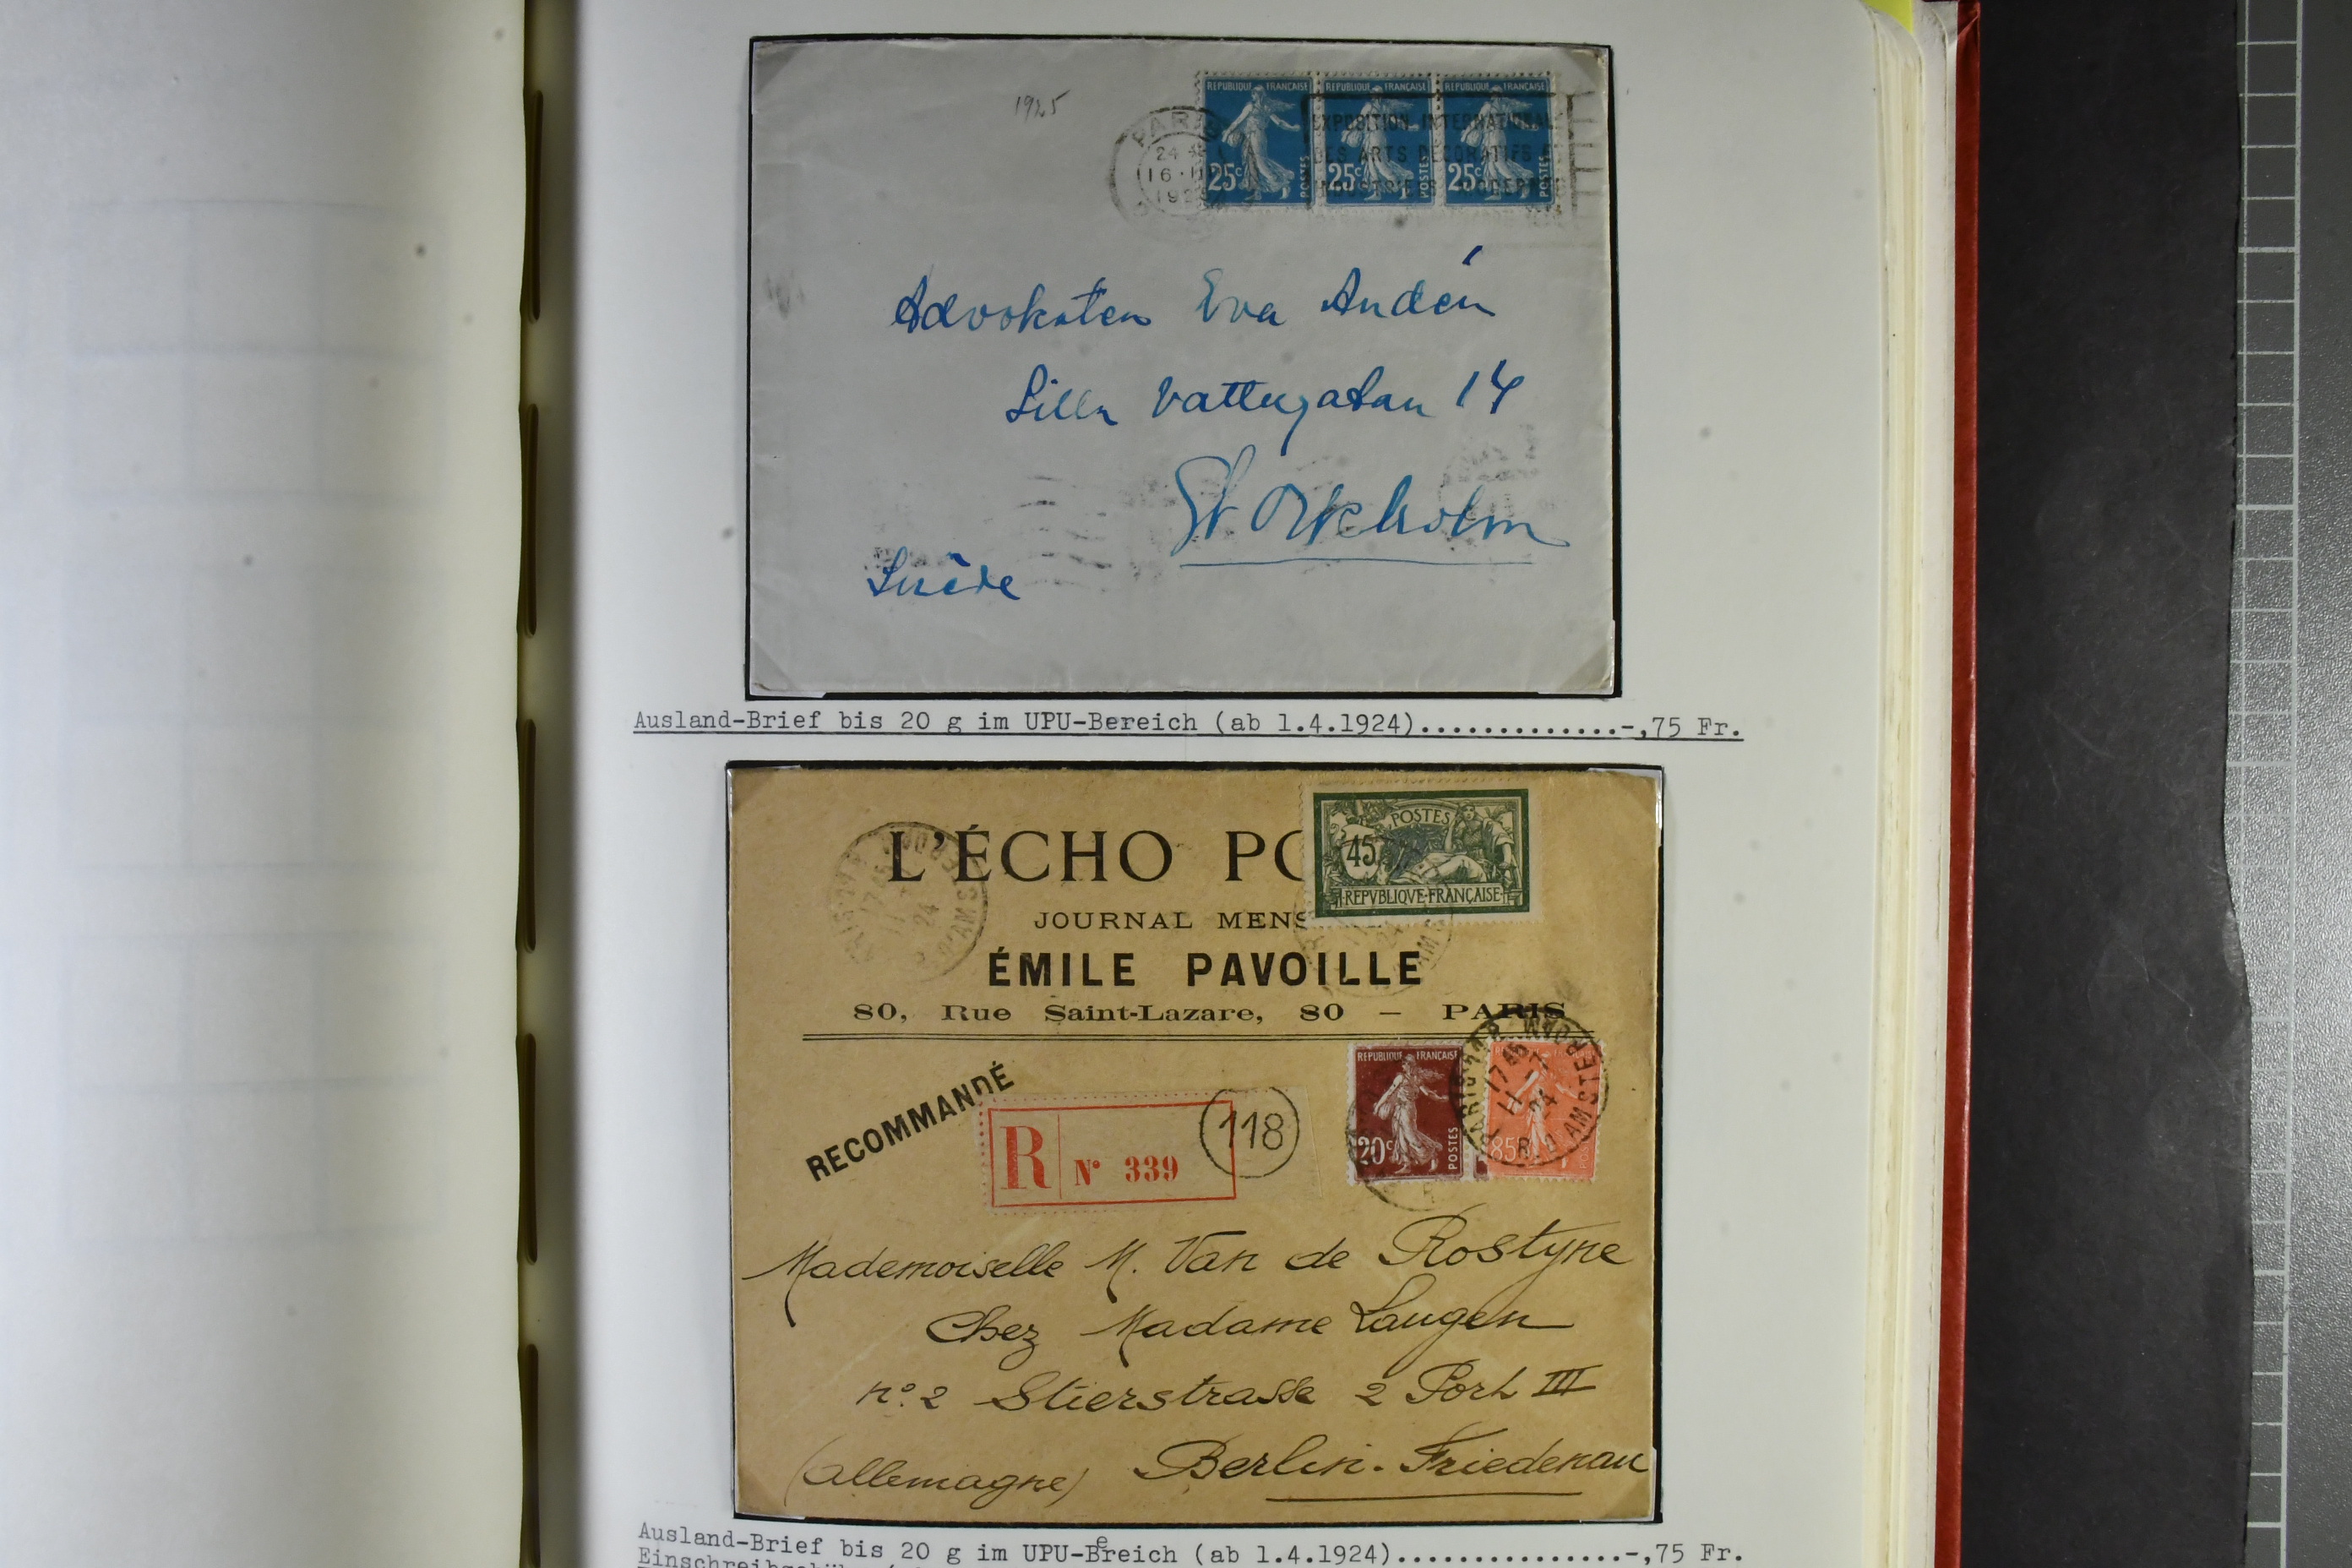 1925
REPUBLIQUE FRANÇAISE
25c POSTES
REPUBLIQUE FRANÇAISE
25c POSTES
REPUBLIQUE FRANÇAISE
25c POSTES
PARIS
24
16
EXPOSITION INTERNATIONALE
DES ARTS DECORATIFS
Advokaten Eva Andén
Lilla Vattugatan 14
Stockholm
Suède
Ausland-Brief bis 20 g im UPU-Bereich (ab 1.4.1924)..............-,75 Fr.
L'ÉCHO PO
JOURNAL MENS
ÉMILE PAVOILLE
80, Rue Saint-Lazare, 80 — PARIS
POSTES
45
REPVBLIQVE·FRANÇAISE
RECOMMANDÉ
R N° 339
118
REPUBLIQUE FRANÇAISE
20c POSTES
85
17 45
11 -7
24
AMSTERDAM
Mademoiselle M. Van de Rostyne
Chez Madame Laugen
n° 2 Stierstrasse 2 Port III
(allemagne) Berlin-Friedenau
Ausland-Brief bis 20 g im UPU-Bereich (ab 1.4.1924)................-,75 Fr.